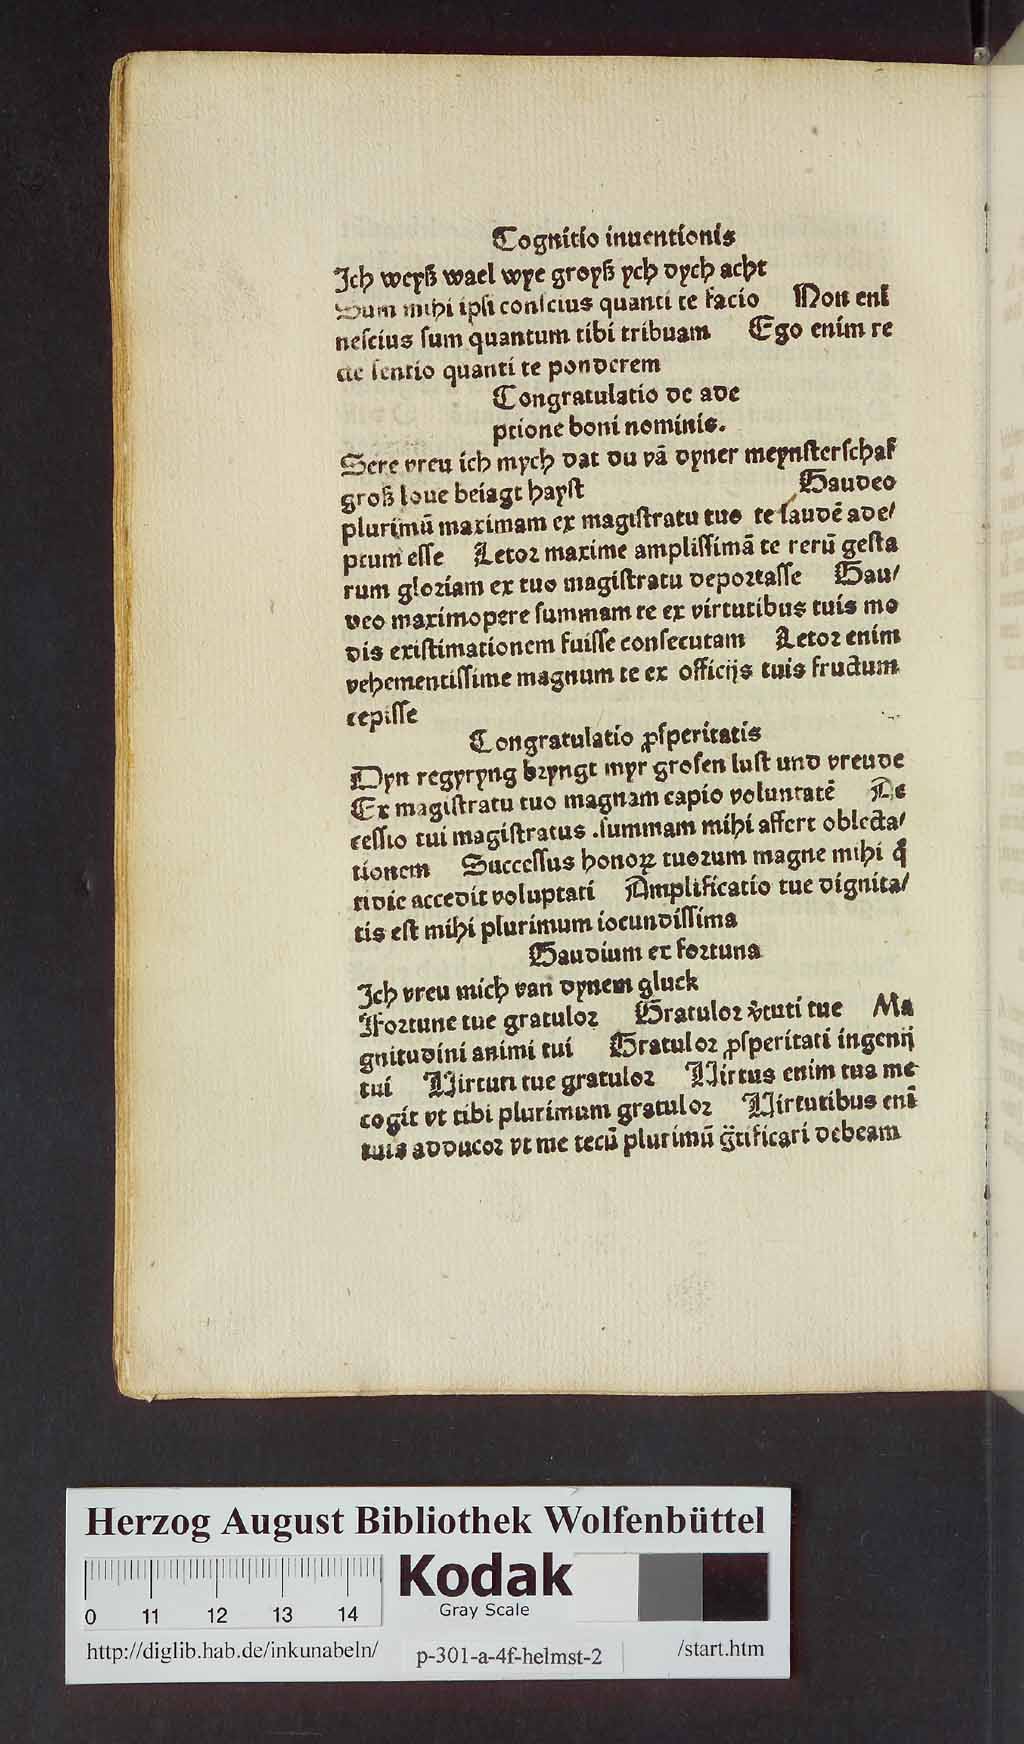 Cognitio inuentionis
Ich weyß wael wye groyß ych dych acht
Sum mihi ipsi conscius quanti te facio Non eni
nescius sum quantum tibi tribuam Ego enim re
cte sentio quanti te ponderem
Congratulatio de ade
ptione boni nominis.
Sere vreu ich mych dat du vā dyner meynsterschaf
groß loue beiagt hayst Gaudeo
plurimū maximam ex magistratu tuo te laudē ade/
ptum esse Letor maxime amplissimā te rerū gesta
rum gloriam ex tuo magistratu deportasse Gau/
deo maximopere summam te ex virtutibus tuis mo
dis existimationem fuisse consecutam Letor enim
vehementissime magnum te ex officijs tuis fructum
cepisse
Congratulatio ꝓsperitatis
Dyn regyryng bryngt myr grosen lust und vreude
Ex magistratu tuo magnam capio voluntatē Ac
cessio tui magistratus summam mihi affert oblecta/
tionem Successus honoꝝ tuorum magne mihi q̄
tidie accedit voluptati Amplificatio tue dignita/
tis est mihi plurimum iocundissima
Gaudium ex fortuna
Ich vreu mich van dynem gluck
Fortune tue gratulor Gratulor v̄tuti tue Ma
gnitudini animi tui Gratulor ꝓsperitati ingenij
tui Virtuti tue gratulor Virtus enim tua me
cogit vt tibi plurimum gratulor Virtutibus enī
tuis adducor vt me tecū plurimū g̈tificari debeam
Herzog August Bibliothek Wolfenbüttel
Kodak
Gray Scale
0 11 12 13 14
http://diglib.hab.de/inkunabeln/ p-301-a-4f-helmst-2 /start.htm